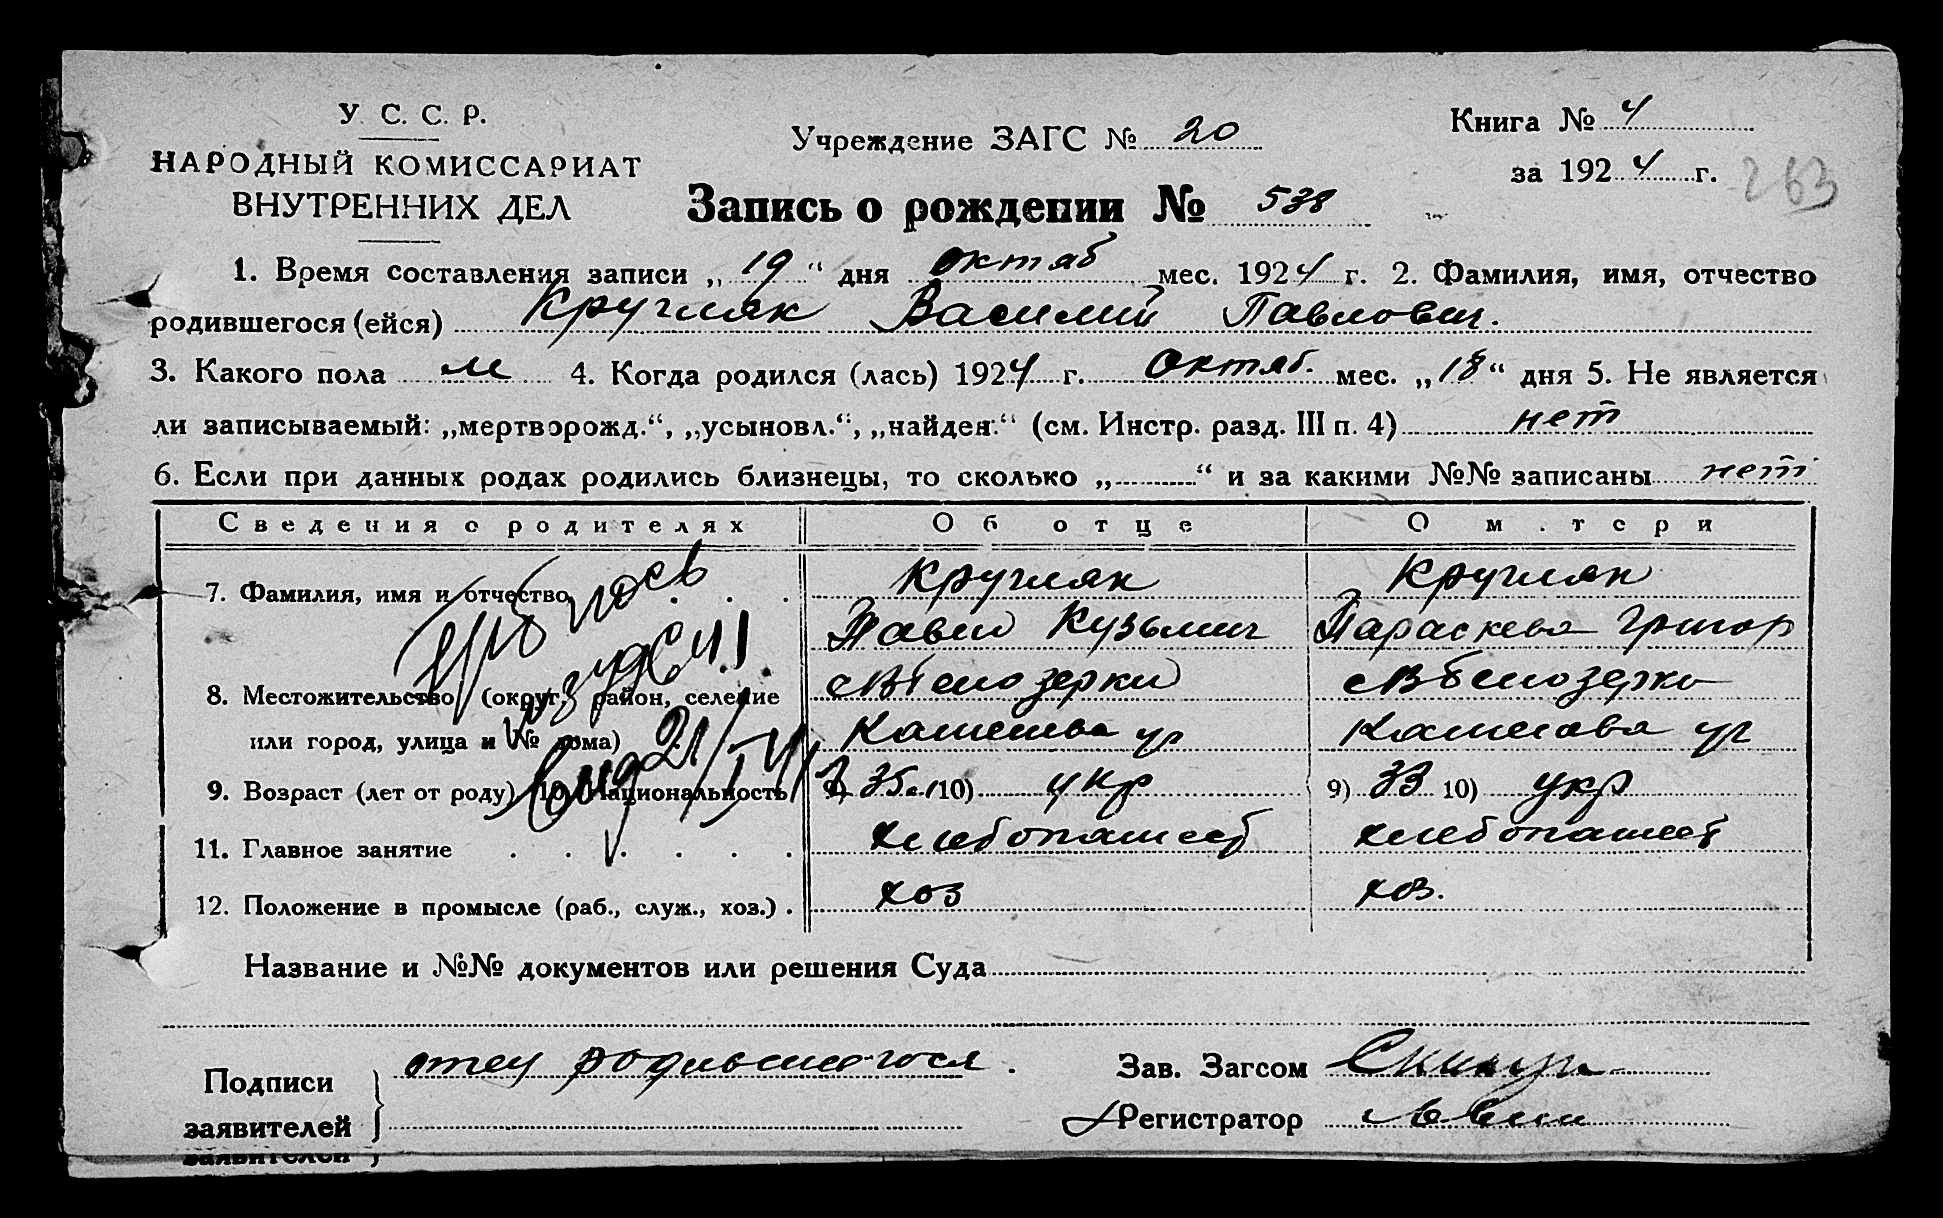 У. С. С. Р.
НАРОДНЫЙ КОМИССАРИАТ
ВНУТРЕННИХ ДЕЛ
Учреждение ЗАГС № 20
Книга № 4
за 1924 г. 263
Запись о рождении № 538
1. Время составления записи „19“ дня октяб мес. 1924 г. 2. Фамилия, имя, отчество
родившегося (ейся) Кругляк Василий Павлович.
3. Какого пола м 4. Когда родился (лась) 1924 г. Октяб. мес. „18“ дня 5. Не является
ли записываемый: „мертворожд.“, „усыновл.“, „найден.“ (см. Инстр. разд. III п. 4) нет
6. Если при данных родах родились близнецы, то сколько „..........“ и за какими №№ записаны нет
Сведения о родителях Об отце О м.тери
7. Фамилия, имя и отчество . . . Кругляк Кругляк
Павел Кузьмич Параскева Григор
8. Местожительство (округ, район, селение Белозерки Белозерко
или город, улица и № дома)
9. Возраст (лет от роду) 10. Национальность 9) 35 10) укр 9) 33 10) укр
11. Главное занятие . . . . . . хлебопашест хлебопашест
12. Положение в промысле (раб., служ., хоз.) . хоз хоз.
Название и №№ документов или решения Суда
Подписи
заявителей
отец родившегося.
Зав. Загсом
Регистратор
заявителей